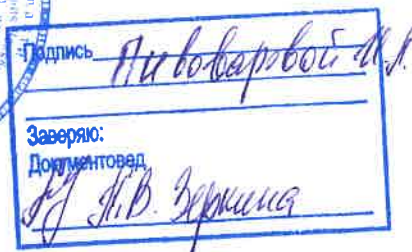 Подпись Пивоваровой И.А.
Заверяю:
Документовед
Н.В. Зернина